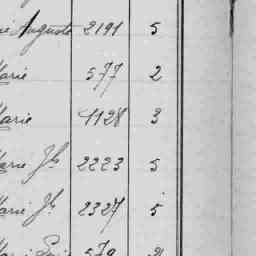 Auguste 2191 5
Marie 577 2
Marie 1128 3
Marie Jh 2223 5
Marie Jh 2327 5
579 2